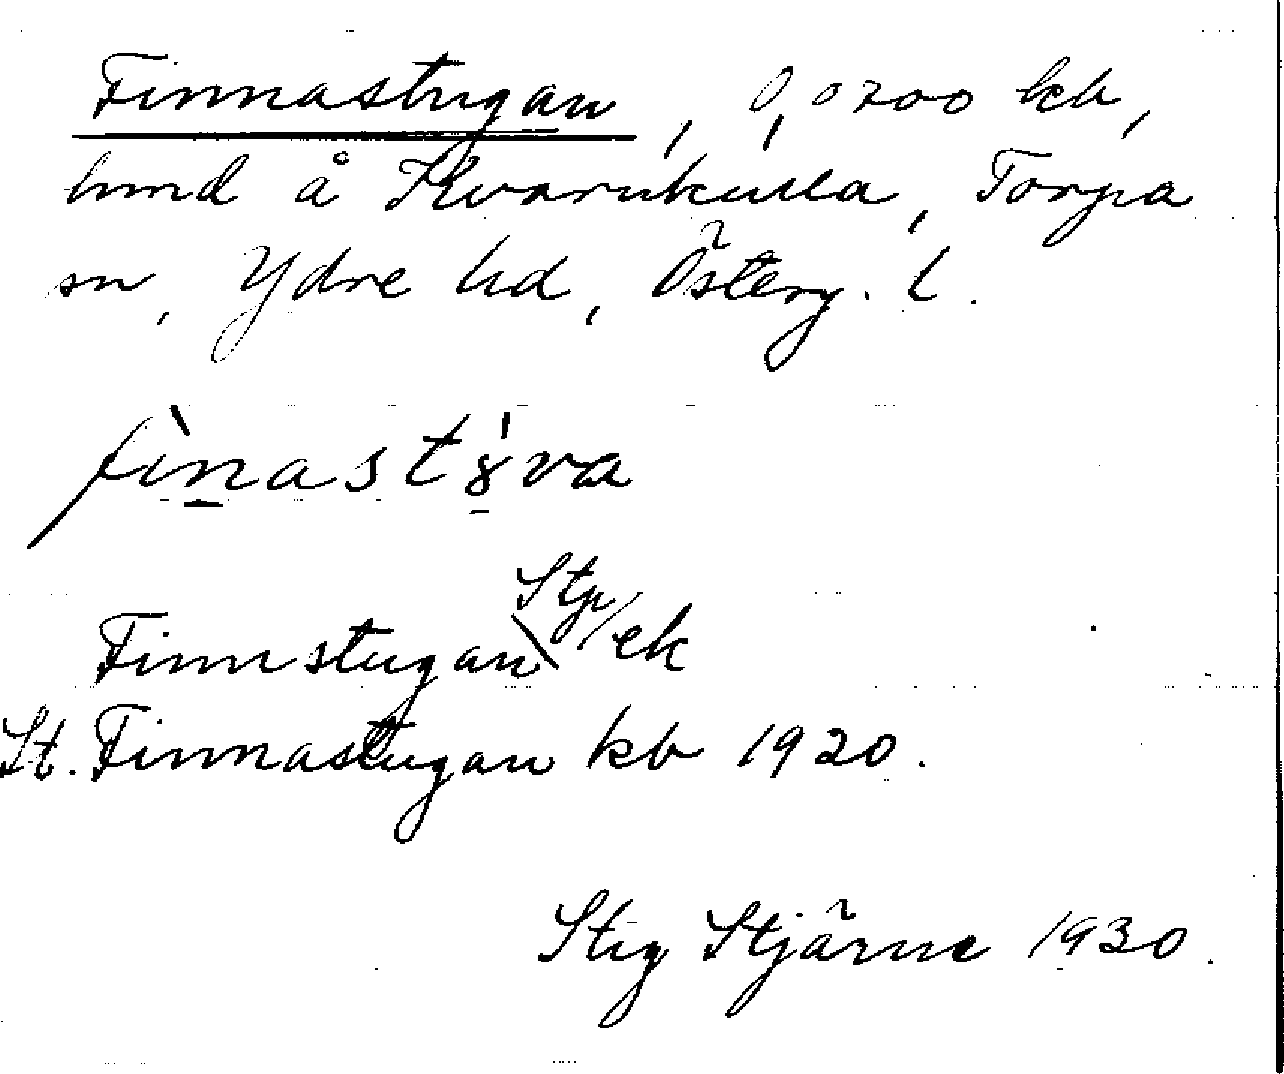 Finnastugan, 0,0200 kb,
lund å Kvarnkulla, Torpa
sn, Ydre hd, Österg. l.
fìnastó̤va
Finnstugan \Stp/ ek
St. Finnastugan kb 1920.
Stig Stjärne 1930.